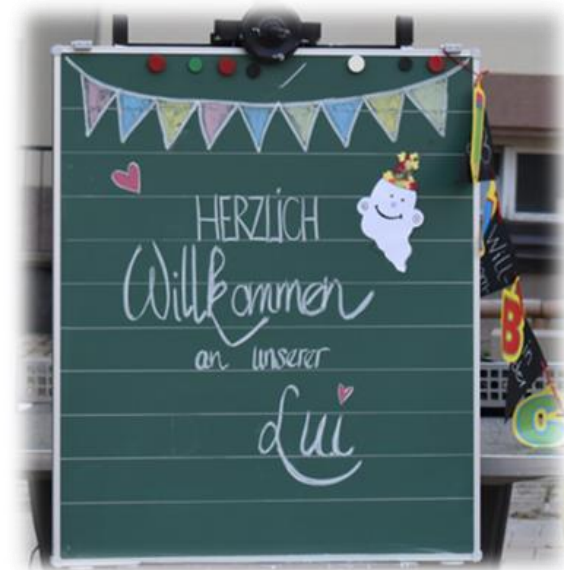 HERZLICH
Willkommen
an unserer
Lui
Will-
B
C